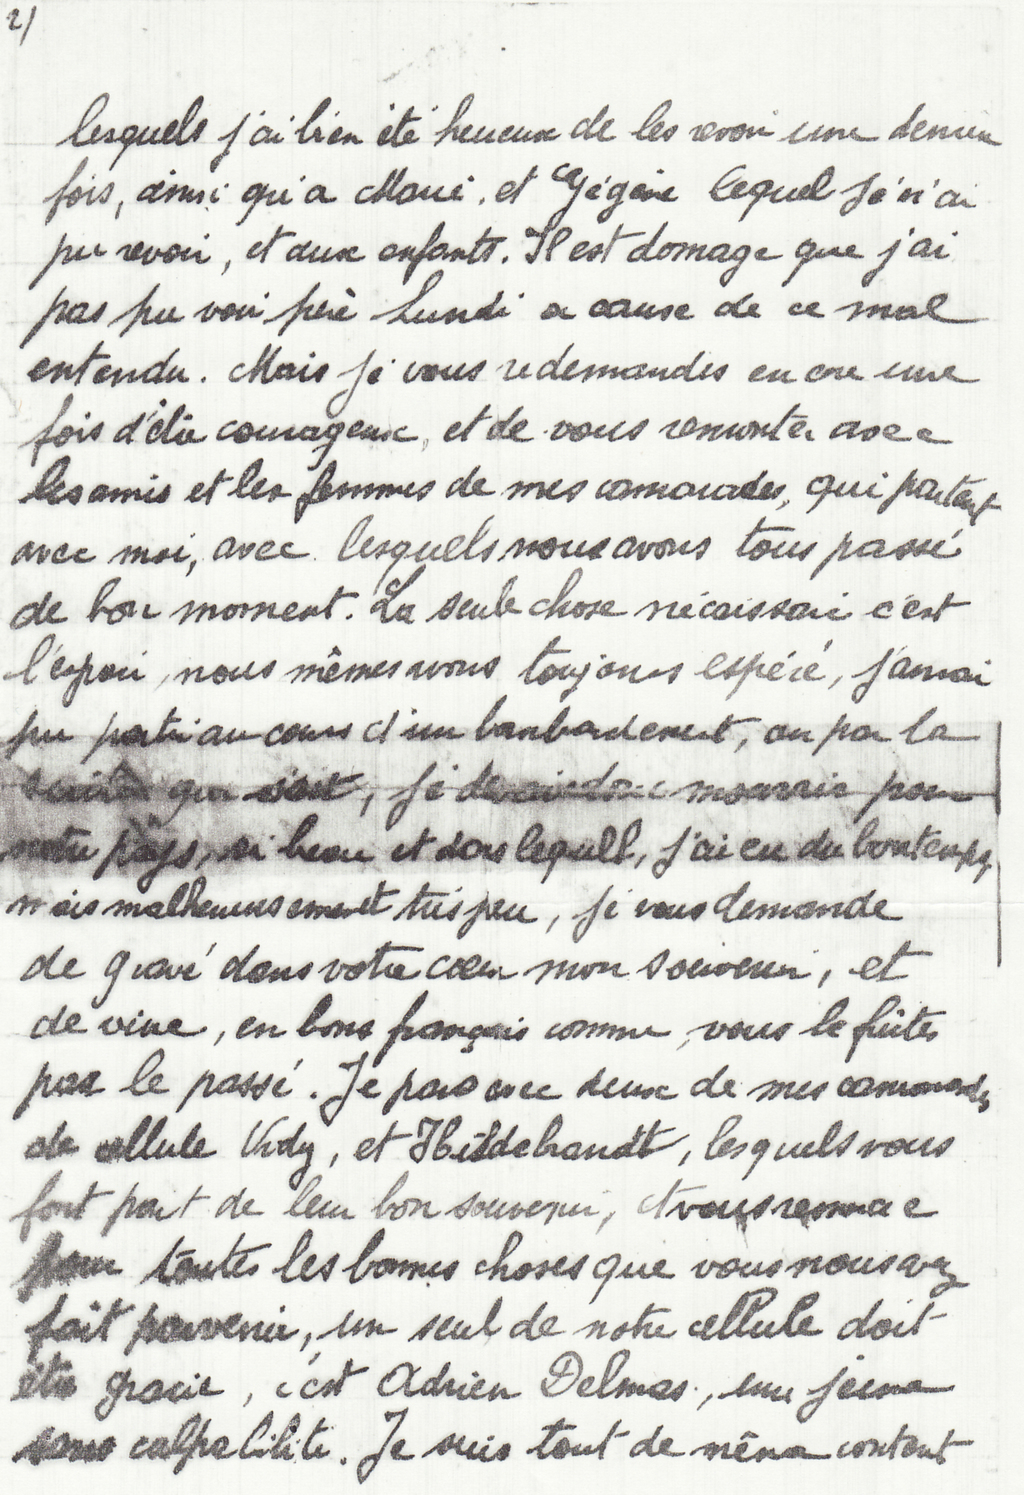 2/
lesquels j'ai bien été heureux de les revoir une dernier
fois, ainsi qu'a Marie, et Gégène lequel Je n'ai
pu revoir, et aux enfants. Il est domage que j'ai
pas pu voir père Lundi a cause de ce mal
entendu. Mais je vous redemandes encore une
fois d'être courageux, et de vous remonter avec
les amis et les femmes de mes camarades, qui partent
avec moi, avec lesquels nous avons tous passé
de bon moment. La seule chose nécaissair c'est
l'espoir, nous mêmes avons toujours espéré, j'aurai
pu partir au cours d'un bombardement, ou par la
suite qui soit, je devais donc mourrir pour
notre pays, si beau et dans lequell, j'ai eu du bon temps,
mais malheureusement très peu, je vous demande
de gravé dans votre cœur mon souvenir, et
de vivre, en bons français comme, vous le fûtes
par le passé. Je pars avec deux de mes camarades
de cellule Vidy, et Hildebrandt, lesquels vous
font part de leur bon souvenir, et vous
pour toutes les bonnes choses que vous nous avez
fait parvenir, un seul de notre cellule doit
être gracié, c'est Adrien Delmas, une jeune
sans calpabilité. Je suis tout de même content